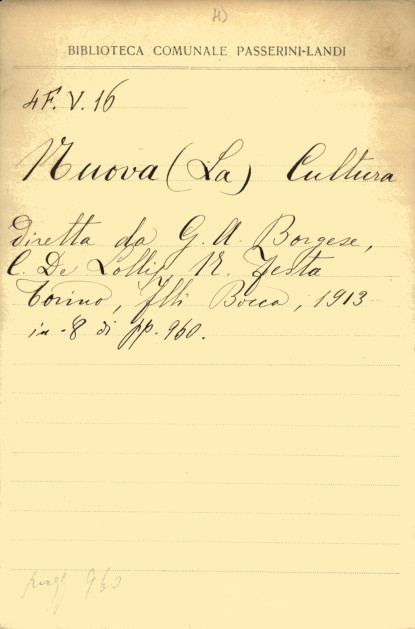 BIBLIOTECA COMUNALE PASSERINI-LANDI
4F. V. 16
Nuova (La) Cultura
diretta da G. A. Borgese,
C. De Lollis, N. Festa
Torino, Flli Bocca, 1913
in-8 di pp. 960.
960